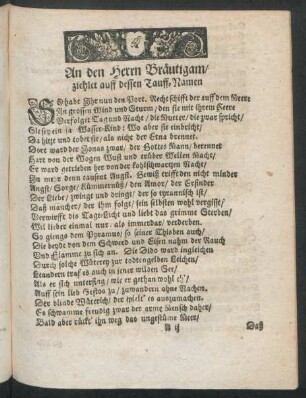 An den Herrn Bräutigam/
ziehlet auff dessen Tauff-Namen
SO habt Ihr nun den Port. Recht schifft der auff dem Meere
In grossen Wind und Sturm/ den sie mit ihrem Heere
Verfolgt Tag und Nacht/ die Mutter/ die zwar spricht/
Sie sey ein Wasser-Kind: Wo aber sie einbricht/
Da hitzt und tobet sie/ als nicht der Etna brennet.
Dort ward der Jonas zwar/ der Gottes Mann/ berennet
Hart von der Wogen Wust und trüber Wellen Macht/
Er ward getrieben her von der kohlschwartzen Nacht/
In mehr denn tausent Angst. Gewiß treiffen nicht minder
Angst/ Sorge/ Kümmernüß/ den Amor/ der Erfinder
Der Liebe/ zwingt und dringt/ der so tyrannisch ist/
Daß mancher/ der ihm folgt/ sein selbsten wohl vergisst/
Verwirfft die Tage-Licht und liebt das grimme Sterben/
Wil lieber einmal nur/ als immerdar/ verderben.
So gieng dem Pyramus/ so seiner Thysben auch/
Die beyde von dem Schwerd und Eisen nahm der Rauch
Und Flamme zu sich an. Die Dido ward ingleichen
Durch solche Wüterey zur todtengelben Leichen/
Leandern traf es auch in jener wilden See/
Als er sich unterfing/ wie er gethan wohl eh'/
Auff sein lieb Sestos zu/ zuwandern ohne Nachen.
Der blinde Wüterich/ der es auszumachen.
Es schwamme freudig zwar der arme Mensch daher/
Bald aber rückt' ihn weg das ungestüme Meer/
A ij Daß